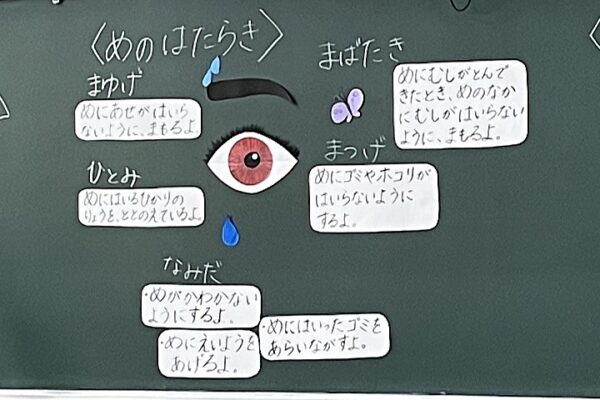 〈めのはたらき〉
まゆげ
めにあせがはいら
ないように、まもるよ。
ひとみ
めにはいるひかりの
りょうを、ととのえているよ。
まばたき
めにむしがとんで
きたとき、めのなか
にむしがはいらない
ように、まもるよ。
まつげ
めにゴミやホコリが
はいらないように
するよ。
なみだ
・めがかわかない
ようにするよ。
・めにえいようを
あげるよ。
・めにはいったゴミを
あらいながすよ。